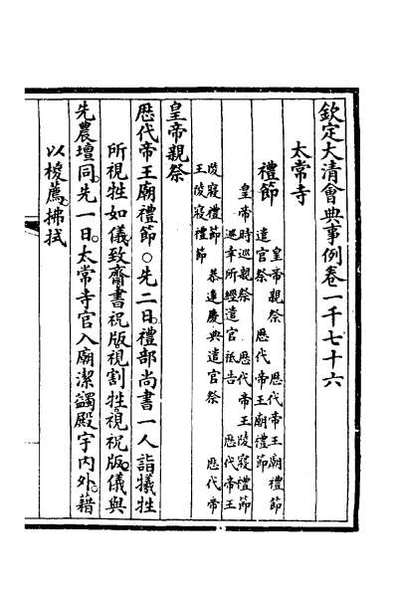 欽定大清會典事例卷一千七十六
太常寺
禮節
皇帝親祭 歷代帝王廟禮節
遣官祭 歷代帝王廟禮節
皇帝時巡親祭 歷代帝王陵寢禮節
巡幸所經遣官祗告 歷代帝王
陵寢禮節 恭進慶典遣官祭 歷代帝
王陵寢禮節
皇帝親祭
歷代帝王廟禮節○先二日禮部尚書一人詣犧牲
所視牲如儀致齋書祝版視割牲視祝版儀與
先農壇同先一日太常寺官入廟潔蠲殿宇內外藉
以椶薦拂拭